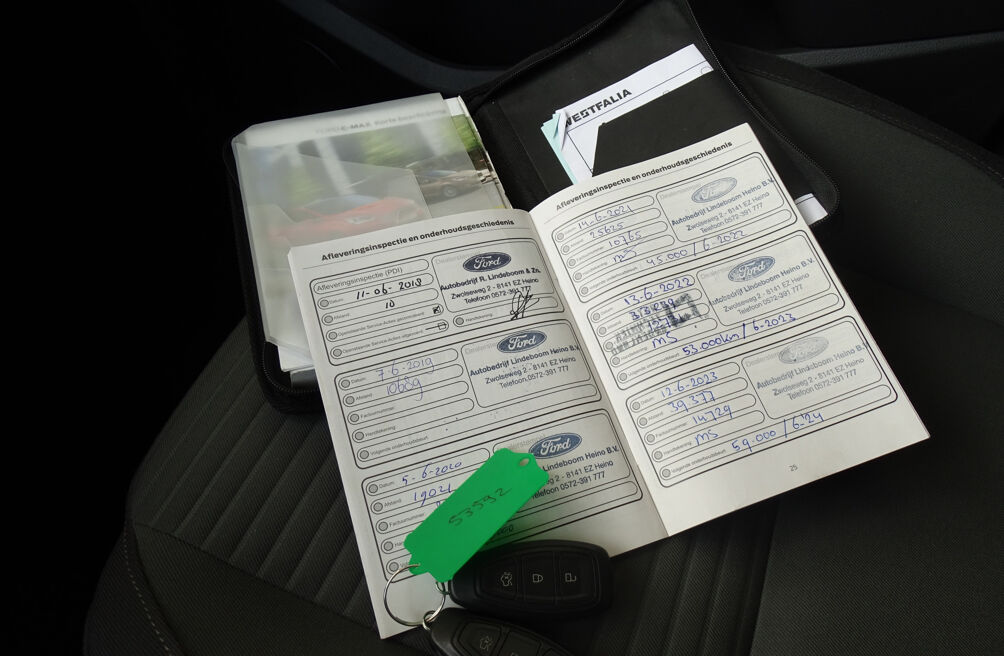 FORD C-MAX Korte beschrijving
WESTFALIA
Afleveringsinspectie en onderhoudsgeschiedenis
Afleveringsinspectie (PDI)
Datum
11-06-2018
Afstand
10
Openstaande Service-Acties
Openstaande Service-Acties
Handtekening
Ford
Autobedrijf R. Lindeboom & Zn.
Zwolseweg 2 - 8141 EZ Heino
Telefoon 0572-391 777
Datum
7-6-2019
Afstand
10689
Factuurnummer
Handtekening
Volgende onderhoudsbeurt
Ford
Autobedrijf Lindeboom Heino
Zwolseweg 2 - 8141 EZ Heino
Telefoon 0572-391 777
Datum
5-6-2020
Afstand
Factuurnummer
Ford
Lindeboom Heino B.V.
2 - 8141 EZ Heino
0572-391 777
53592
Afleveringsinspectie en onderhoudsgeschiedenis
14-6-2021
Afstand
25625
10765
Handtekening
MS
Volgende onderhoudsbeurt
45.000 / 6-2022
Ford
Autobedrijf Lindeboom Heino B.V.
Zwolseweg 2 - 8141 EZ Heino
Telefoon 0572-391 777
Datum
13-6-2022
Handtekening
MS
Volgende onderhoudsbeurt
53.000km / 6-2023
Ford
Autobedrijf Lindeboom Heino B.V.
Zwolseweg 2 - 8141 EZ Heino
Telefoon 0572-391 777
Datum
12-6-2023
Afstand
39377
Factuurnummer
14729
Handtekening
MS
Volgende onderhoudsbeurt
59.000 / 6-24
Ford
Autobedrijf Lindeboom Heino B.V.
Zwolseweg 2 - 8141 EZ Heino
Telefoon 0572-391 777
25